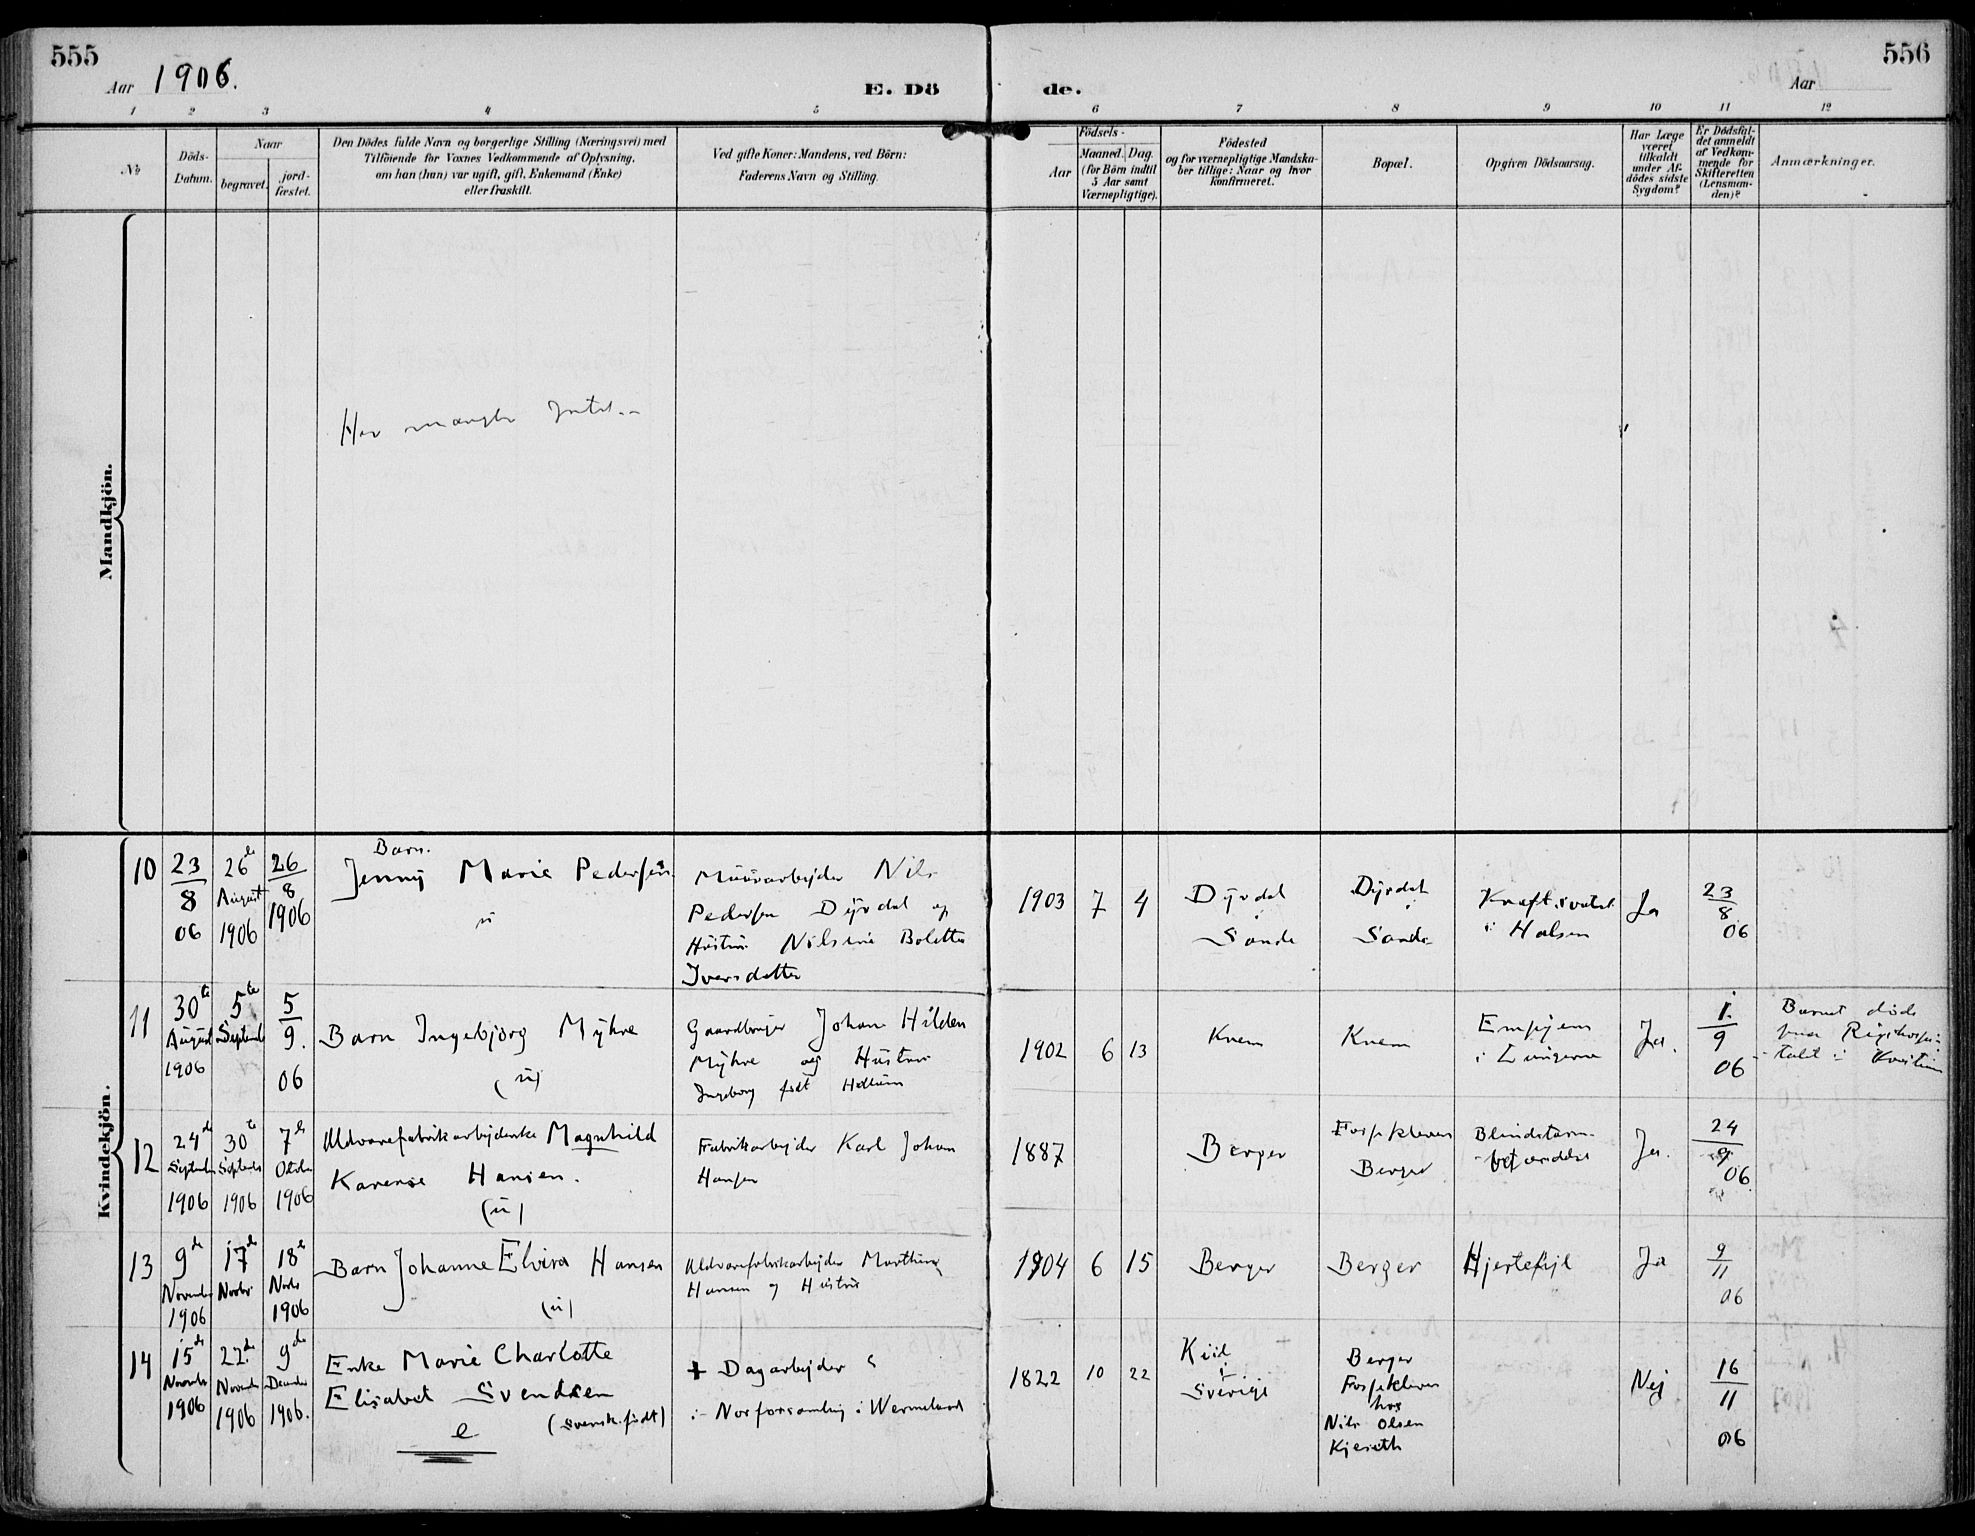 555
Aar 1906.
E. Dö
de.
556
Aar
1 2 3 4 5 6 7 8 9 10 11 12
No
Döds-
Datum.
Naar
begravet.
jord-
fæstet.
Den Dödes fulde Navn og borgerlige Stilling (Næringsvei) med
Tilföiende for Voxnes Vedkommende af Oplysning,
om han (hun) var ugift, gift, Enkemand (Enke)
eller fraskilt.
Ved gifte Koner: Mandens, ved Börn:
Faderens Navn og Stilling.
Födsels-
Aar
Maaned. Dag.
(for Börn indtil
5 Aar samt
Værnepligtige).
Födested
og for værnepligtige Mandska-
ber tillige: Naar og hvor
konfirmeret.
Bopæl.
Opgiven Dödsaarsag.
Har Læge
været
tilkaldt
under Af-
dödes sidste
Sygdom?
Er Dödsfal-
det anmeldt
af Vedkom-
mende for
Skifteretten
(Lensman-
den)?
Anmærkninger.
Mandkjön.
Her mangler Intet.
Kvindekjön.
10
23
8
06
26de
August
1906
26
8
1906
Barn.
Jenny Marie Pedersen
u
Nils
Pedersen Dyrdal og
Hustru Nilsine Bolette
Iversdatter
1903 7 4
Dyrdal
i
Sande
Dyrdal
i
Sande
i Halsen
Ja
23
8
06
11
30te
August
1906
5te
September
5
9.
06
Barn Ingebjorg Myhre
(u)
Gaardbruger Johan Hilden
Myhre og Hustru
Ingeborg født
1902 6 13
Knem
Knem
Empyem
i Lungerne
Ja.
1.
9
06
Barnet døde
paa Rigshospi-
talet i Kristiania
12
24de
September
1906
30te
September
1906
7de
Oktober
1906
Uldvarefabrikarbejderske Magnhild
Karense Hansen.
(u)
Fabrikarbejder Karl Johan
Hansen
1887
Berger
Fossekleven
Berger
Blindtarm-
betændelse
Ja.
24
9
06.
13
9de
November
1906
17de
Novbr
18de
Novbr
1906
Barn Johanne Elvira Hansen
(u)
Uldvarefabrikarbejder Marthin
Hansen og Hustru
1904 6 15
Berger
Berger
Hjertefejl
Ja
9
11
06
14
15de
November
1906
22de
November
1906
9de
December
1906.
Enke Marie Charlotte
Elisabet Svendsen
(svensk født)
e
+ Dagarbejder
i Norforsamling i Wermeland
1822 10 22
i
Sverige
Berger
Fossekleven
hos
Nils Olsen
Nej
16
11
06